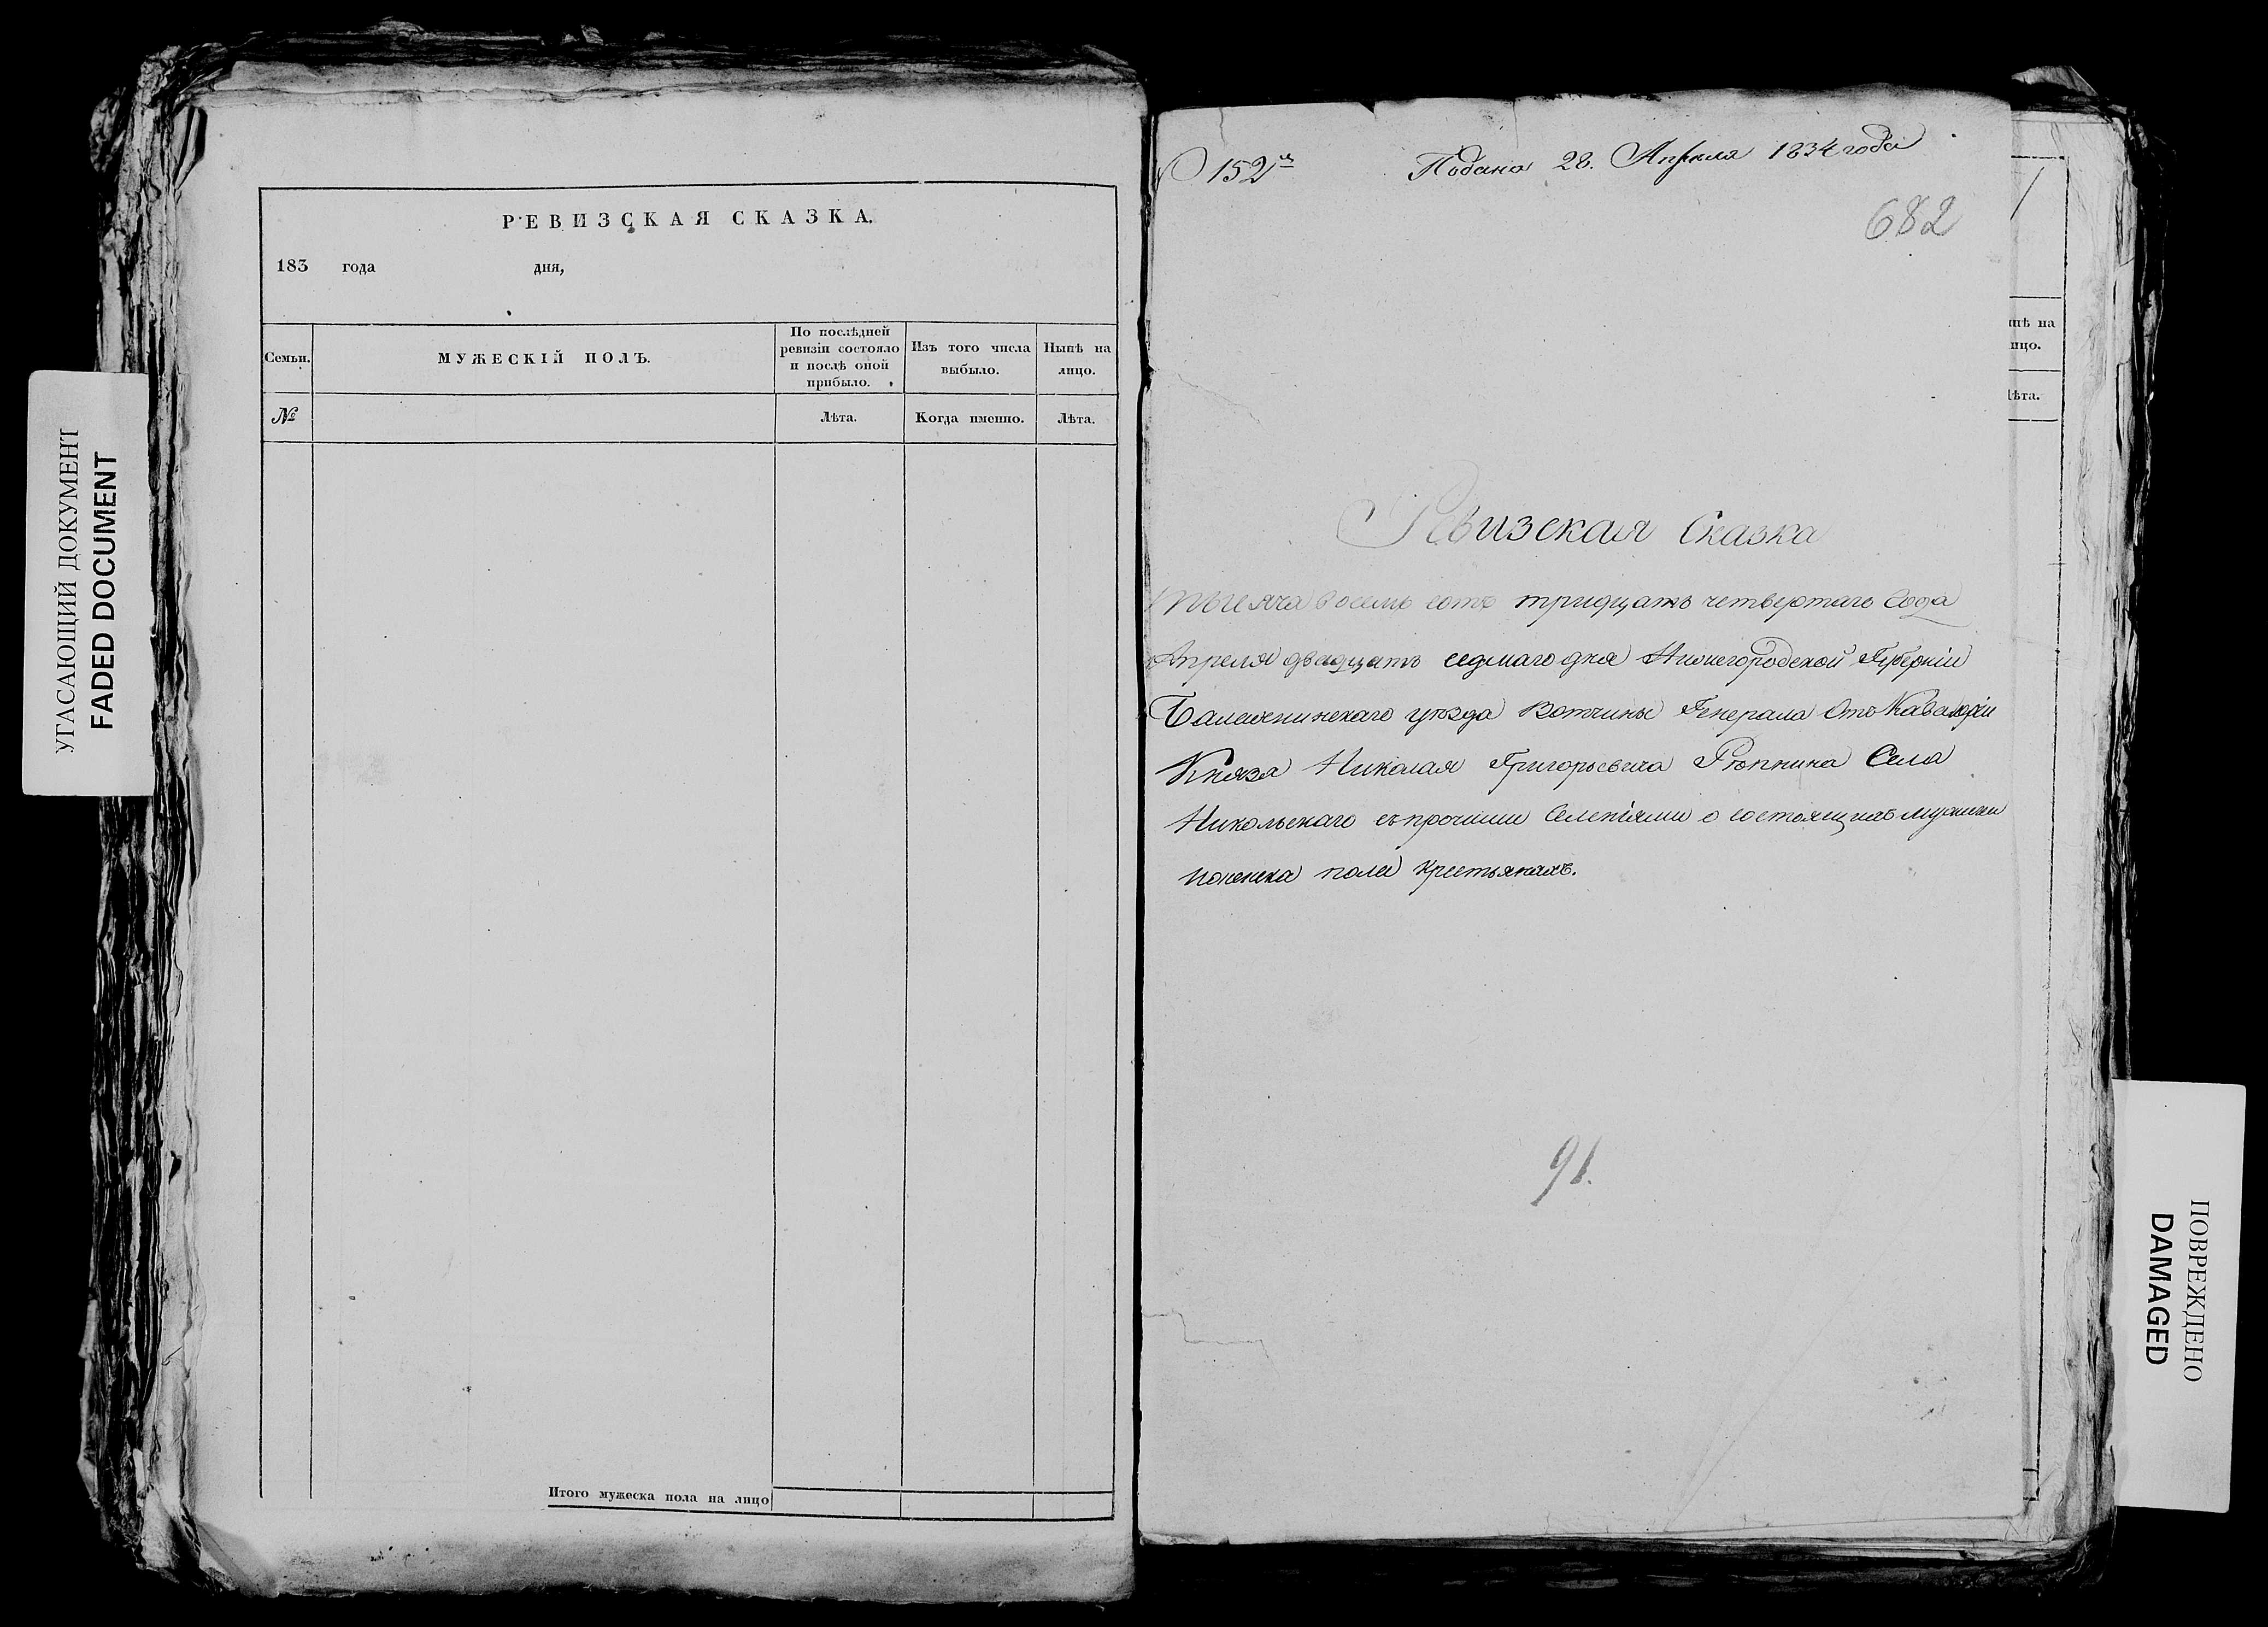 УГАСАЮЩИЙ ДОКУМЕНТ
FADED DOCUMENT
РЕВИЗСКАЯ СКАЗКА.
183 года дня,
Семьи.
МУЖЕСКІЙ ПОЛЪ.
По послѣдней
ревизіи состояло
и послѣ оной
прибыло.
Изъ того числа
выбыло.
Нынѣ на
лицо.
№
Лѣта.
Когда именно.
Лѣта.
Итого мужеска пола на лицо
152
Подана 28. Апреля 1834 года
682
Ревизская Сказка
тысяча восемь сотъ тридцать четвертаго Года
Апреля двадцать седмаго дня Нижегородской Губерніи
Балахнинскаго уѣзда Вотчины Генерала Отъ Кавалеріи
Князя Николая Григорьевича Рѣпнина Села
Никольскаго съ прочими Селеніями о состоящихъ мужеска
женска пола крестьянахъ.
91.
нѣ на
ицо.
ѣта.
ПОВРЕЖДЕНО
DAMAGED